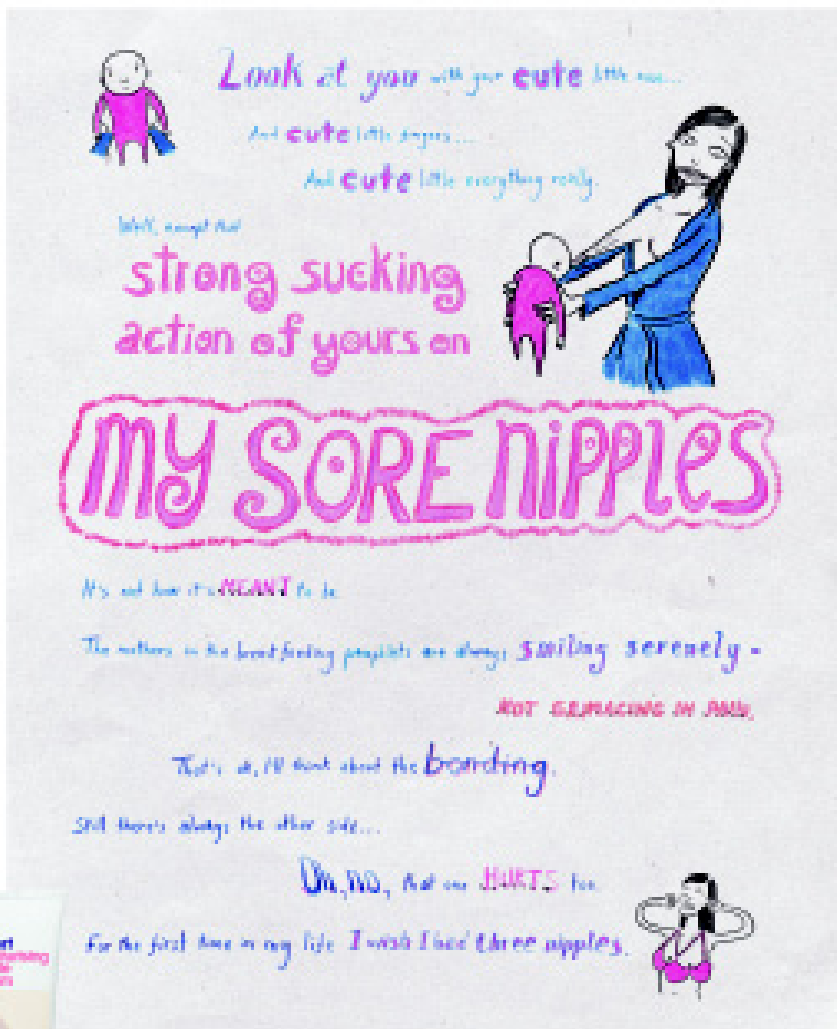 Look at you with your cute little nose...
And cute little fingers...
And cute little everything really.
Well, except that
strong sucking
action of yours on
MY SORE NIPPLES
It's not how it's MEANT to be
The mothers in the breastfeeding pamphlets are always smiling serenely -
NOT GRIMACING IN PAIN.
That's ok, I'll think about the bonding.
Still there's always the other side...
Oh, no, that one HURTS too.
For the first time in my life I wish I had three nipples.